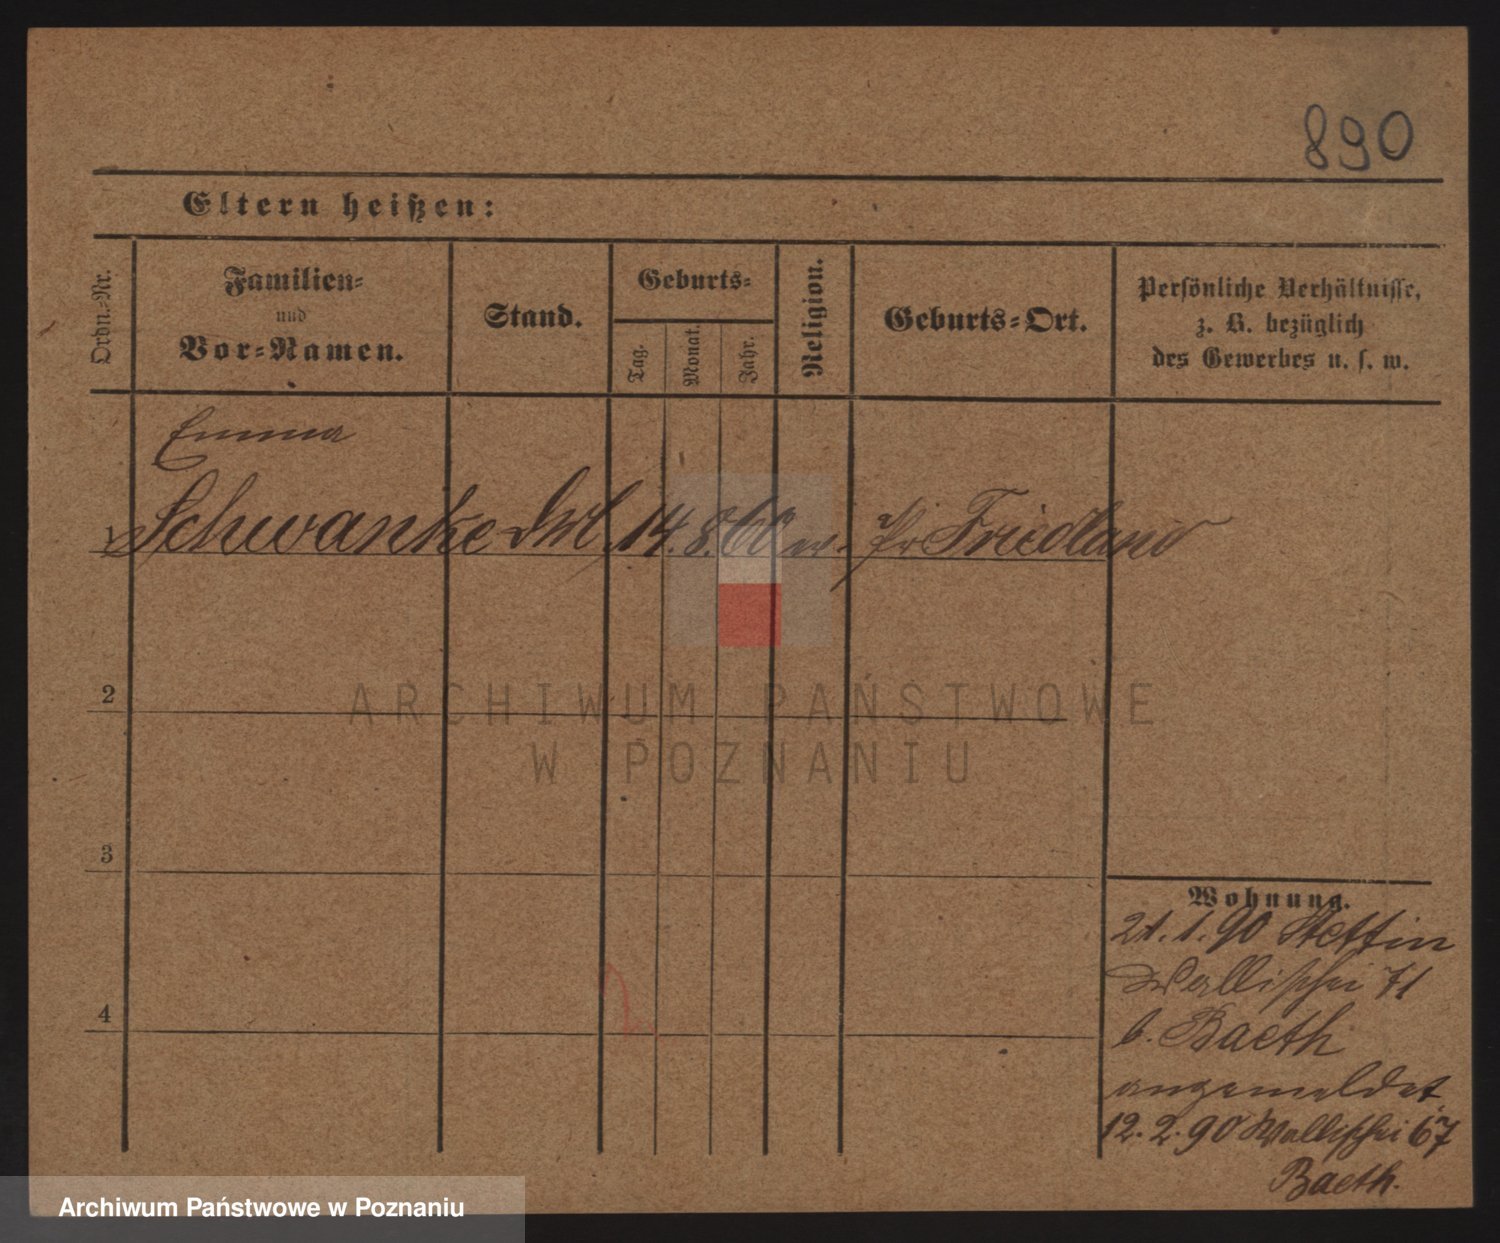 890
Eltern heißen:
Ordn.-Nr.
Familien-
und
Vor-Namen.
Stand.
Geburts-
Tag.
Monat.
Jahr.
Religion.
Geburts-Ort.
Persönliche Verhältnisse,
z. B. bezüglich
des Gewerbes u. s. w.
Emma
1 Schwanke 14. 8. 60 ev. Pr Friedland
2
ARCHIWUM PAŃSTWOWE
W POZNANIU
3
Wohnung.
21. 1. 90 Stettin
Wallischei 71
b. Baeth
angemeldet
4
12. 2. 90 Wallischei 67
Baeth.
Archiwum Państwowe w Poznaniu